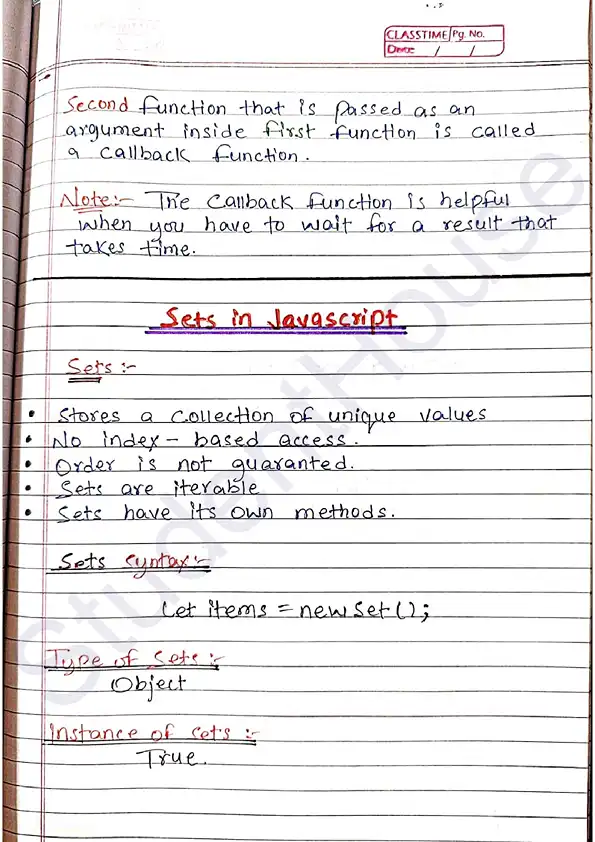 CLASSTIME Pg. No.
Date / /
Second function that is passed as an
argument inside first function is called
a callback function.
Note:- The callback function is helpful
when you have to wait for a result that
takes time.
Sets in Javascript
Sets :-
• Stores a collection of unique values
• No index-based access.
• Order is not guaranted.
• Sets are iterable
• Sets have its own methods.
Sets syntax:-
Let items = new Set();
Type of Sets :-
Object
Instance of sets :-
True.
StudentHouse